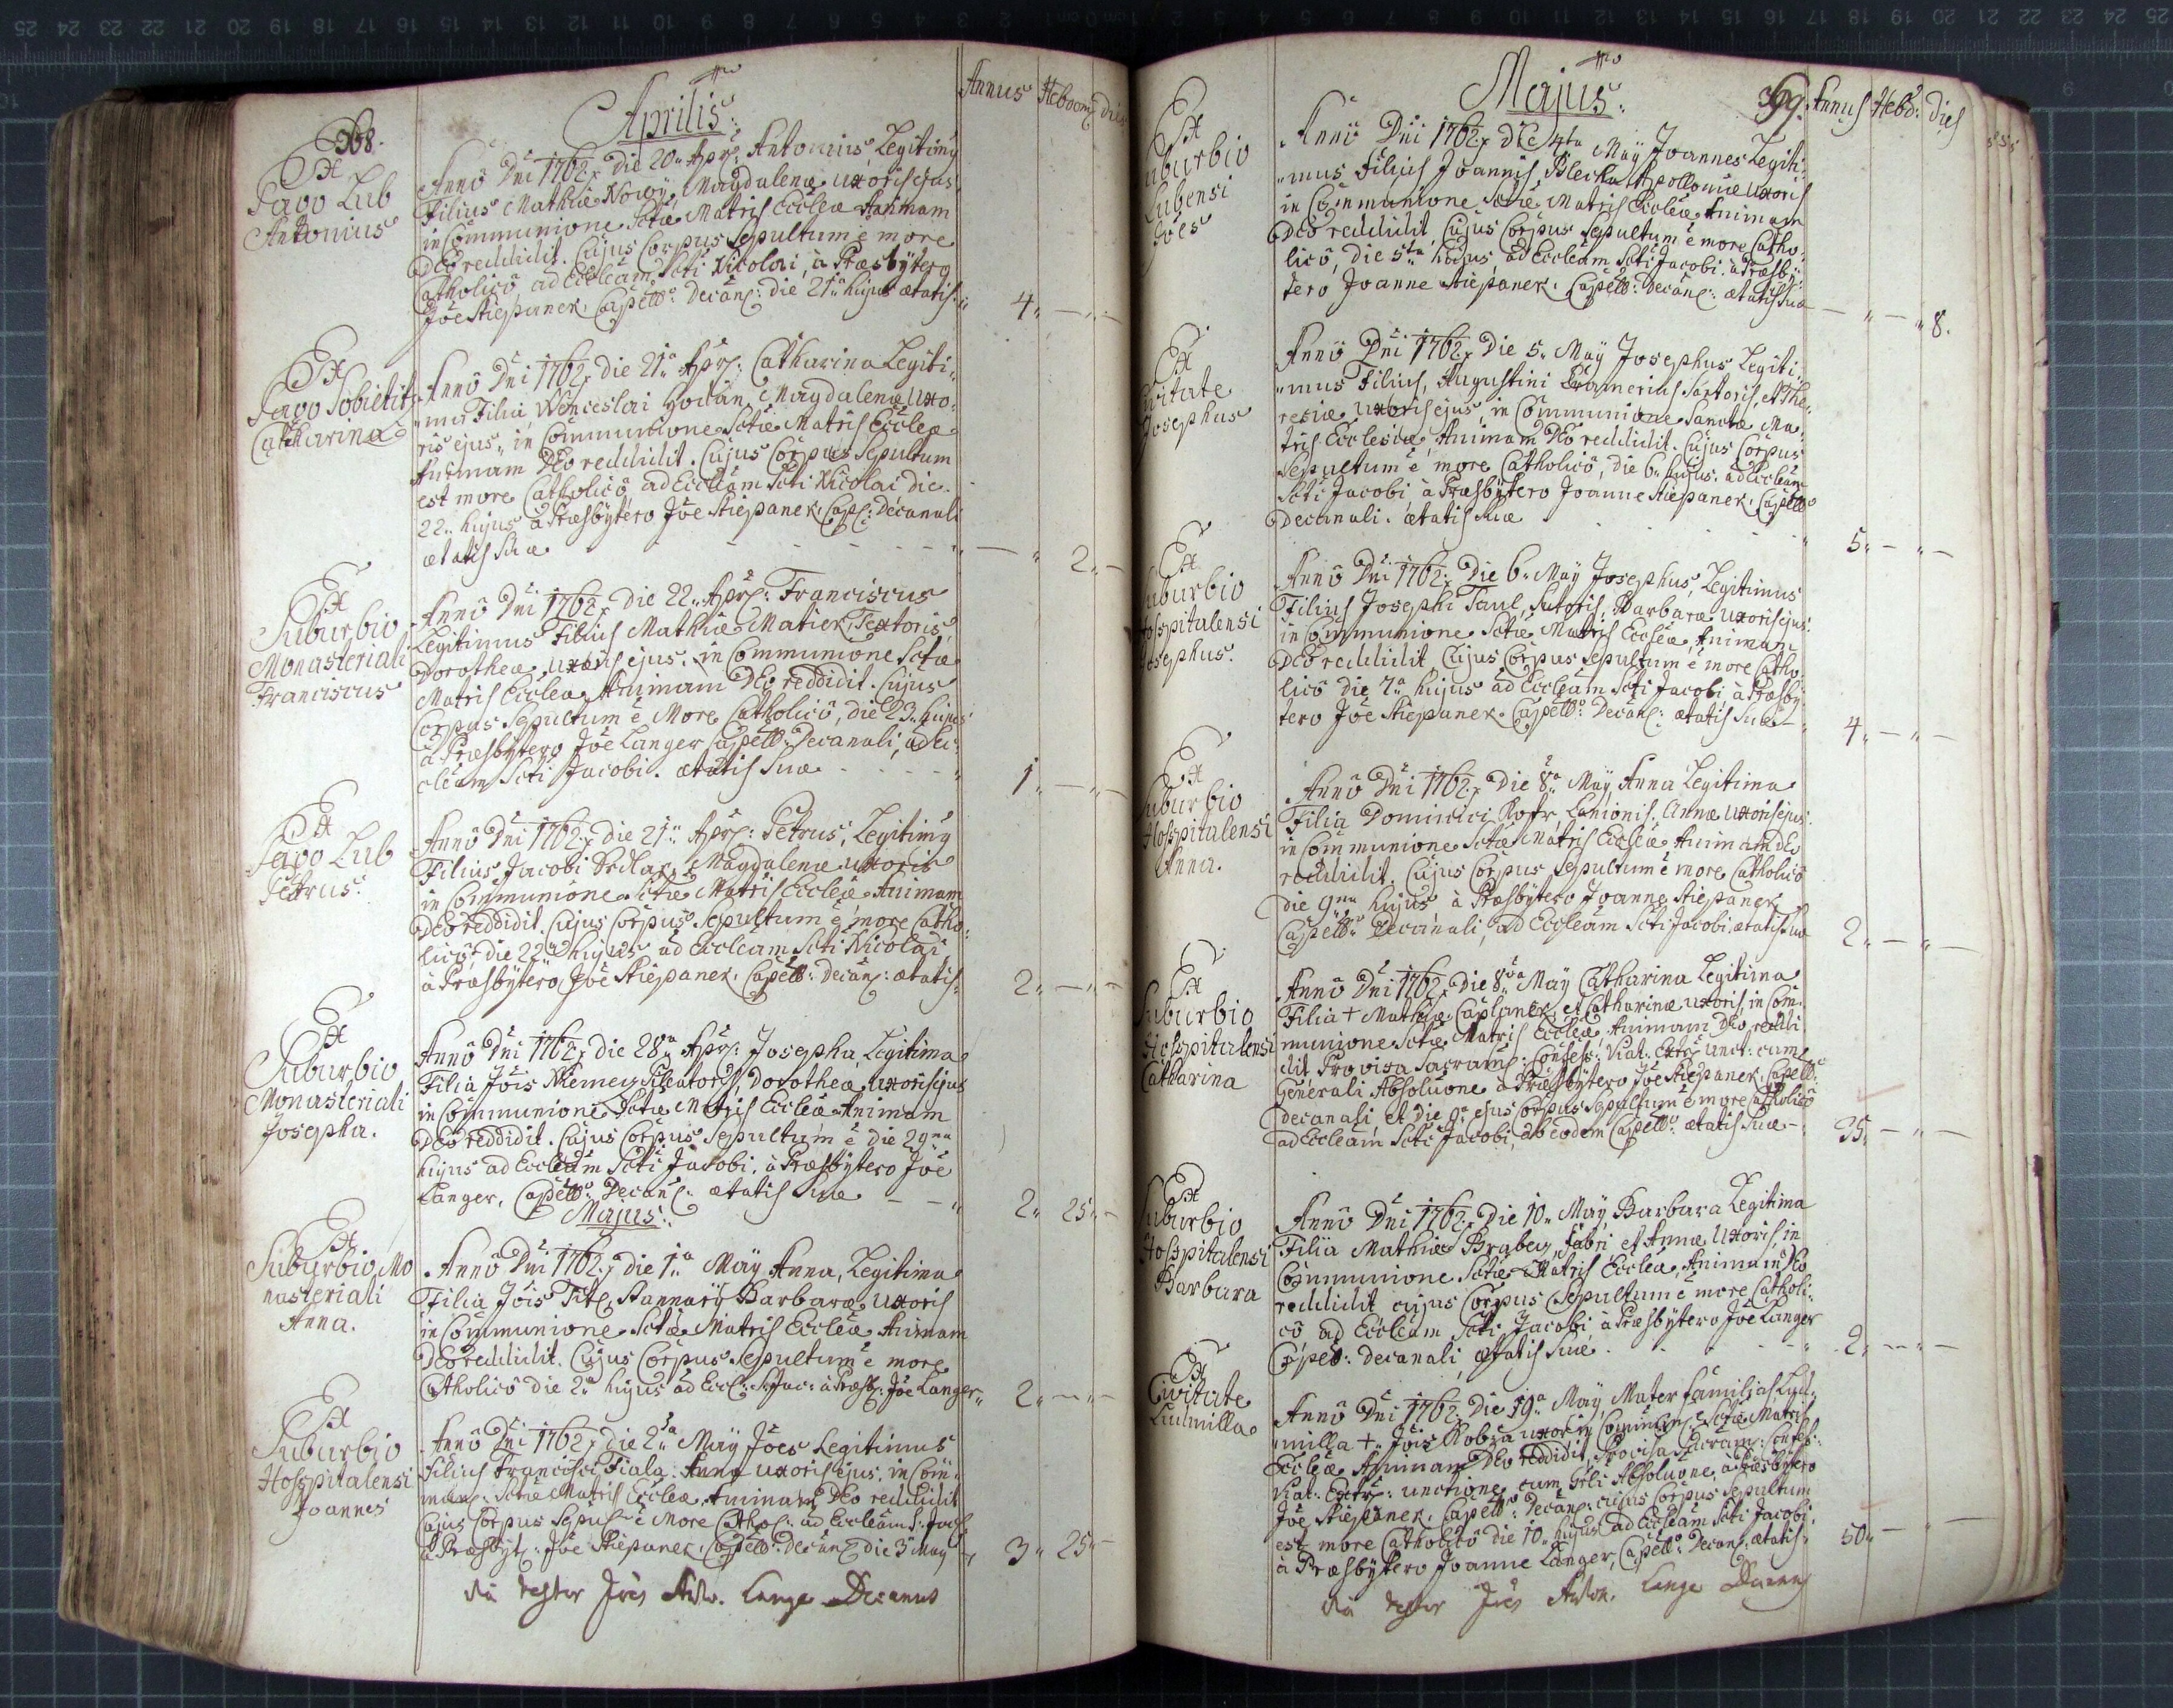 368.
Aprilis
Annus Hebdom: dies
Ex
Pago Lub
Antonius
Anno Dni 1762 die 20a Apr: Antonius, Legitimy
Filius Mathiæ Nowy, Magdalenæ uxoris ejus
in Communione Sctæ Matris Eccleæ Animam
DEo reddidit. Cujus Corpus Sepultum e more
Catholico ad Eccleam Scti Nicolai, à Præsbytero
Joe Stiepanek, Capell: Decan: die 21a hujus ætatis
4
Ex
Pago
Catharina
Anno Dni 1762 die 21a Apr: Catharina Legiti-
ma Filia Wenceslai Magdalenæ Uxo-
ris ejus, in Communione Sctæ Matris Eccleæ
Animam DEo reddidit. Cujus Corpus Sepultum
est more Catholico ad Eccleam Scti Nicolai die
22 hujus à Præsbytero Joe Stiepanek, Cap: Decanali
ætatis suæ
2
Ex
Suburbio
Monasteriali
Franciscus
Anno Dni 1762 die 22 Apr: Franciscus
Legitimus Filius Mathiæ Matiek, Textoris
Dorotheæ, uxoris ejus, in Communione Sctæ
Matris Eccleæ Animam DEo reddidit. Cujus
Corpus Sepultum e More Catholico, die 23 hujus
à Præsbytero Joe Langer Capell: Decanali, ad Ec-
cleam Scti Jacobi. ætatis suæ
1
Ex
Pago Lub
Petrus
Anno Dni 1762 die 21 Apr: Petrus, Legitimy
Filius Jacobi Magdalenæ uxoris
in Communione Sctæ Matris Eccleæ Animam
DEo reddidit. Cujus Corpus Sepultum e more Catho-
lico, die 22 hujus ad Eccleam Scti Nicolai
à Præsbytero, Joe Stiepanek. Capell: Decan: ætatis
2
Ex
Suburbio
Monasteriali
Josepha.
Anno Dni 1762 die 28a Apr: Josepha Legitima
Filia Jois Niemecz Pileatoris, Dorotheæ, uxoris ejus
in Communione Sctæ Matris Eccleæ Animam
DEo reddidit. Cujus Corpus Sepultum e die 29na
hujus ad Eccleam Scti Jacobi, à Præsbytero Joe
Langer, Capell: Decan: ætatis suæ
2 25
Majus
Ex
Suburbio Mo
nasteriali
Anna.
Anno Dni 1762 die 1a May Anna, Legitima
Filia Jois Barbaræ Uxoris
in Communione Sctæ Matris Eccleæ Animam
DEo reddidit. Cujus Corpus Sepultum e more
Catholico die 2a hujus ad Eccl: S: Jac: à Præsb: Joe Langer
2
Ex
Suburbio
Hospitalensi
Joannes
Anno Dni 1762 die 2a May Joes Legitimus
Filius Francisci Fiala Annæ uxoris ejus, in Com-
mun: Sctæ Matris Eccleæ, Animam DEo reddidit
Cujus Corpus Sepul: e More Cathol: ad Eccleam S: Jac:
à Præsbyt: Joe Stiepanek, Capell: Decan: die 3 May
3 25
Ita testor Joes Lange Decanus
Majus
369.
Annus Hebd: dies
Ex
Suburbio
Lubensi
Joes
Anno Dni 1762 die 4ta May Joannes Legiti-
mus Filius Joannis Blecha Apolloniæ Uxoris
in Communione Sctæ Matris Eccleæ, Animam
DEo reddidit Cujus Corpus Sepultum e more Catho-
lico, die 5ta hujus, ad Eccleam Scti Jacobi à Præsby-
tero Joanne Stiepanek. Capell: Decan: ætatis suæ
8.
Ex
Civitate
Josephus
Anno Dni 1762 die 5 May Josephus Legiti-
mus Filius, Augustini Sartoris, et The-
resiæ uxoris ejus, in Communione Sanctæ Ma-
tris Ecclesiæ, Animam DEo reddidit. Cujus Corpus
Sepultum e, more Catholico, die 6 hujus ad Eccleam
Scti Jacobi à Præsbytero Joanne Stiepanek. Capello
Decanali. ætatis suæ
5
Ex
Suburbio
Hospitalensi
Josephus.
Anno Dni 1762 Die 6 May Josephus, Legitimus
Filius Josephi Paul, Sutoris, Barbaræ uxoris ejus
in Communione Sctæ Matris Eccleæ, Animam
DEo reddidit Cujus Corpus Sepultum e more Catho-
lico die 7a hujus ad Eccleam Scti Jacobi à Præsby-
tero Joe Stiepanek. Capell: Decan: ætatis suæ
4
Ex
Suburbio
Hospitalensi
Anna.
Anno Dni 1762 die 8a May Anna Legitima
Filia Dominici Lanionis. Annæ uxoris ejus
in Communione Sctæ Matris Eccleæ Animam DEo
reddidit. Cujus Corpus Sepultum e more Catholico
die 9na hujus à Præsbytero Joanne Stiepanek
Capell: Decanali, ad Eccleam Scti Jacobi. ætatis suæ
2
Ex
Suburbio
Hospitalensi
Catharina
Anno Dni 1762 die 8va May Catharina Legitima
Filia + Mathiæ Caplanek, et Catharinæ uxoris, in Com-
munione Sctæ Matris Eccleæ Animam DEo, reddi-
dit Provisa Sacram: Confess: Viat: Extr: Unct: cum
Generali Absolutione à Præsbytero Joe Stiepanek, Capell:
decanali, et die 9a ejus Corpus Sepultum e more Catholico
ad Eccleam Scti Jacobi, ab eodem Capell: ætatis suæ
35
Ex
Suburbio
Hospitalensi
Barbara
Anno Dni 1762 Die 10 May Barbara Legitima
Filia Mathiæ Fabri et Annæ Uxoris, in
Communione Sctæ Matris Eccleæ, Animam DEo
reddidit cujus Corpus Sepultum e more Catholi-
co, ad Eccleam Scti Jacobi à Præsbytero Joe Langer
Capell: decanali ætatis suæ
2
Ex
Civitate
Ludmilla
Anno Dni 1762 Die 19a May, Mater familias Lud-
milla + Jois Kobza uxor in Commun: Sctæ Matris
Eccleæ Animam DEo reddidit, Provisa Sacram: Confes:
Viat: Extr: unctione cum Grli Absolutione, à Præsbytero
Joe Stiepanek, Capell: Decan: cujus Corpus Sepultum
est more Catholico die 10 hujus ad Eccleam Scti Jacobi.
à Præsbytero Joanne Langer, Capell: Decan: ætatis
50
Ita testor Joes Lange Decanus